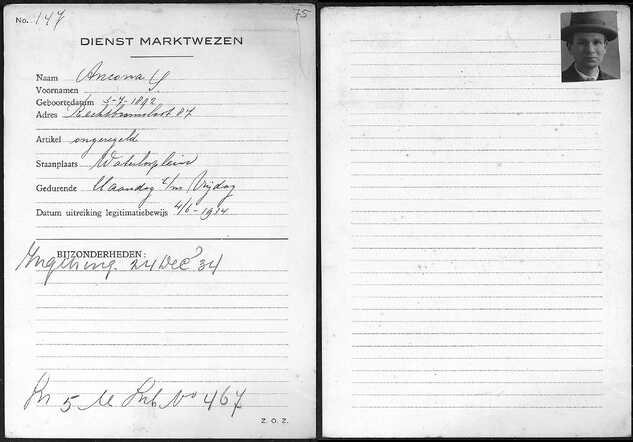 No. 147
75
DIENST MARKTWEZEN
Naam Ancona S.
Voornamen
Geboortedatum 5-7-1892
Adres Rechtboomsloot 87
Artikel ongeregeld
Staanplaats Waterlooplein
Gedurende Maandag t/m Vrijdag
Datum uitreiking legitimatiebewijs 4/6-1934
BIJZONDERHEDEN:
24 Dec 34
5 M No 467
Z. O. Z.